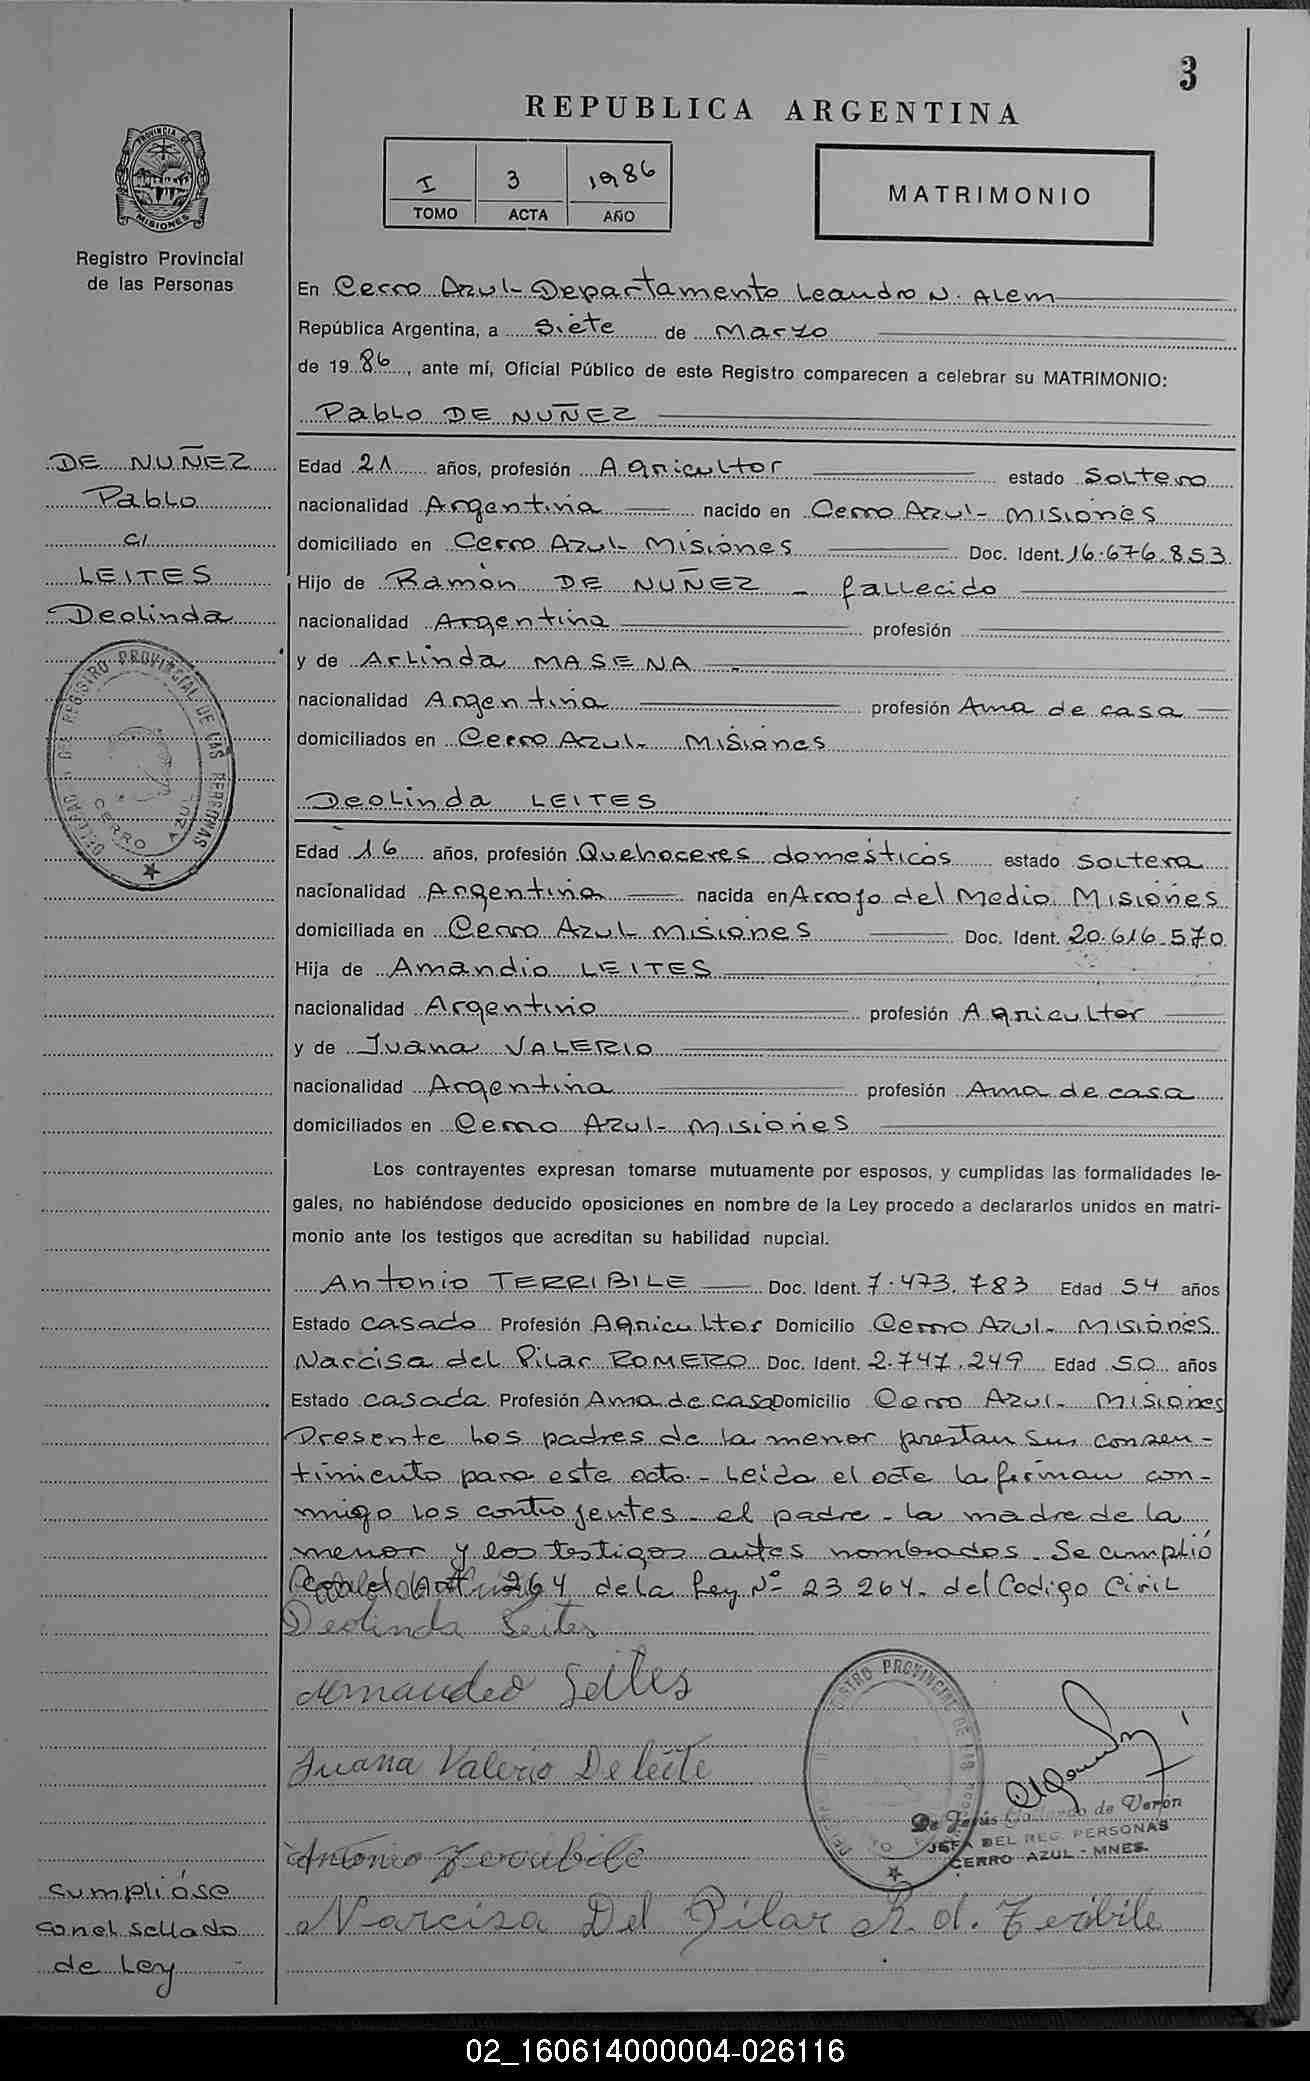 3
REPUBLICA ARGENTINA
I 3 1986
TOMO ACTA AÑO
MATRIMONIO
PROVINCIA DE
MISIONES
Registro Provincial
de las Personas
En Cerro Azul- Departamento Leandro N. Alem
República Argentina, a Siete de Marzo
de 1986, ante mí, Oficial Público de este Registro comparecen a celebrar su MATRIMONIO:
Pablo DE NUÑEZ
DE NUÑEZ
Pablo
c/
LEITES
Deolinda
Edad 21 años, profesión Agricultor estado Soltero
nacionalidad Argentina nacido en Cerro Azul- Misiones
domiciliado en Cerro Azul- Misiones Doc. Ident. 16.676.853
Hijo de Ramón DE NUÑEZ - fallecido
nacionalidad Argentina profesión
y de Arlinda MASENA -
nacionalidad Argentina profesión Ama de casa
domiciliados en Cerro Azul- Misiones
REGISTRO PROVINCIAL DE LAS PERSONAS
CERRO AZUL
Deolinda LEITES
Edad 16 años, profesión Quehaceres domésticos estado Soltera
nacionalidad Argentina nacida en Arroyo del Medio Misiones
domiciliada en Cerro Azul Misiones Doc. Ident. 20.616.570
Hija de Amandio LEITES
nacionalidad Argentino profesión Agricultor
y de Juana VALERIO
nacionalidad Argentina profesión Ama de casa
domiciliados en Cerro Azul- Misiones
Los contrayentes expresan tomarse mutuamente por esposos, y cumplidas las formalidades le-
gales, no habiéndose deducido oposiciones en nombre de la Ley procedo a declararlos unidos en matri-
monio ante los testigos que acreditan su habilidad nupcial.
Antonio TERRIBILE Doc. Ident. 7.473.783 Edad 54 años
Estado casado Profesión Agricultor Domicilio Cerro Azul- Misiones
Narcisa del Pilar ROMERO Doc. Ident. 2.747.249 Edad 50 años
Estado casada Profesión Ama de casa Domicilio Cerro Azul- Misiones
Presente los padres de la menor prestan sus consen-
timiento para este acto.- Leida el acta la firman con-
migo los contrayentes- el padre- la madre de la
menor y los testigos antes nombrados. Se cumplió
264 de la Ley Nº 23264- del Codigo Civil
Deolinda Leites
Leites
Juana Valerio De leite
REGISTRO PROVINCIAL DE LAS
De Jesús de Verón
JEFA DEL REG. PERSONAS
CERRO AZUL - MNES.
Antonio Terribile
Narcisa Del Pilar R. d. Teribile
Cumplióse
con el sellado
de Ley
02_160614000004-026116